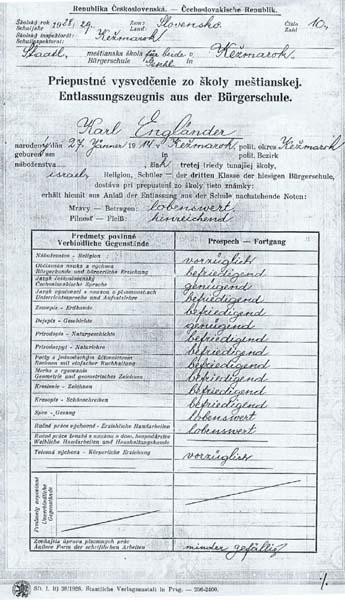 Republika Československá. — Čechoslovakische Republik.
Školský rok 1928/29 Zem: Slovensko. Číslo 10.
Schuljahr Land: Zahl
Školský inšpektorát: Kežmarok
Schulinspektorat:
Staatl. meštianska škola für beide v Kežmarok
Bürgerschule Geschl. in
Priepustné vysvedčenie zo školy meštianskej.
Entlassungszeugnis aus der Bürgerschule.
Karl Engländer
narodený dňa 27. Jänner 1914 v Kežmarok, polit. okres Kežmarok
geboren am in polit. Bezirk
náboženstva žiak tretej triedy tunajšej školy,
israel. Religion, Schüler — der dritten Klasse der hiesigen Bürgerschule,
dostáva pri prepustení zo školy tieto známky:
erhält hiemit aus Anlaß der Entlassung aus der Schule nachstehende Noten:
Mravy — Betragen: lobenswert
Pilnosť — Fleiß: hinreichend
Predmety povinné Prospech — Fortgang
Verbindliche Gegenstände
Náboženstvo - Religion vorzüglich
Občianska nauka a výchova befriedigend
Bürgerkunde und bürgerliche Erziehung
Jazyk československý genügend
Čechoslovakische Sprache
Unterrichtssprache und Aufsatzlehre befriedigend
Zemepis - Erdkunde befriedigend
Dejepis - Geschichte genügend
Prírodopis - Naturgeschichte befriedigend
Prírodozpyt - Naturlehre befriedigend
Počty s jednoduchým účtovníctvom befriedigend
Rechnen mit einfacher Buchhaltung
Merba a rysovanie befriedigend
Geometrie und geometrisches Zeichnen
Kreslenie - Zeichnen befriedigend
Krasopis - Schönschreiben befriedigend
Spev - Gesang lobenswert
Ručné práce výchovné - Erziehliche Handarbeiten lobenswert
Ručné práce ženské s naukou o dom. hospodárstve
Weibliche Handarbeiten und Haushaltungskunde
Telesná výchova - Körperliche Erziehung vorzüglich
Predmety nepovinné
Unverbindliche Gegenstände
Zovňajšia úprava písomných prác minder gefällig
Äußere Form der schriftlichen Arbeiten
Staatliche Verlagsanstalt in Prag.